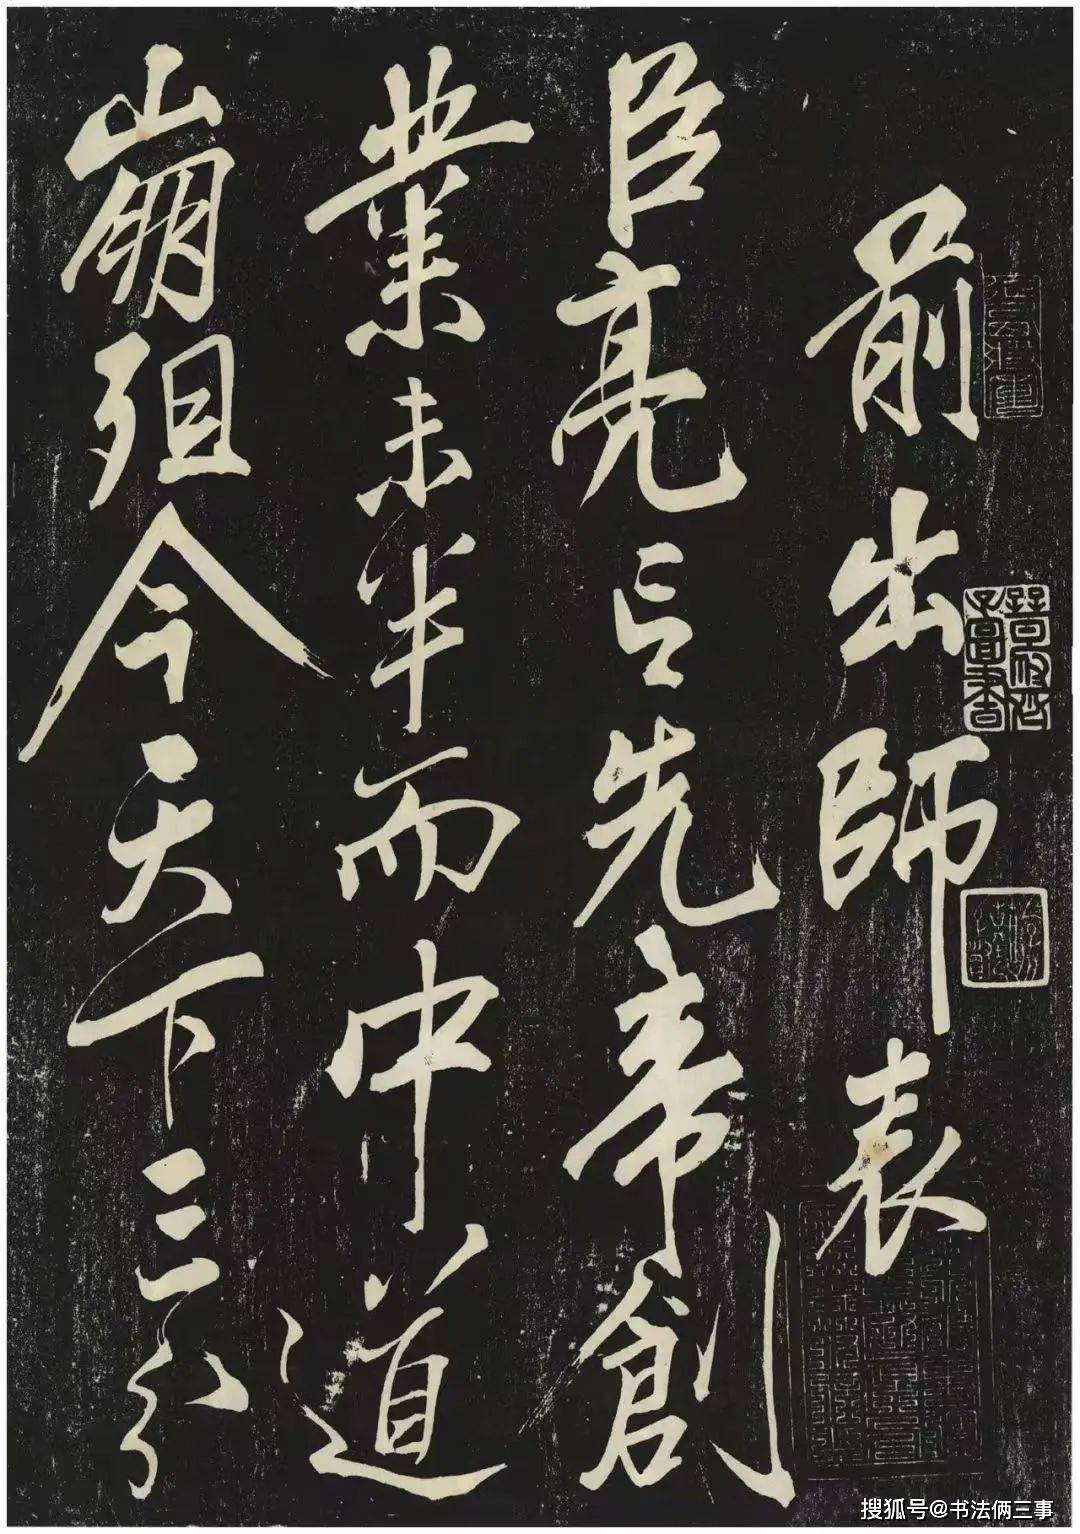 前出師表
臣亮言先帝創
業未半而中道
崩殂今天下三分
搜狐号@书法俩三事